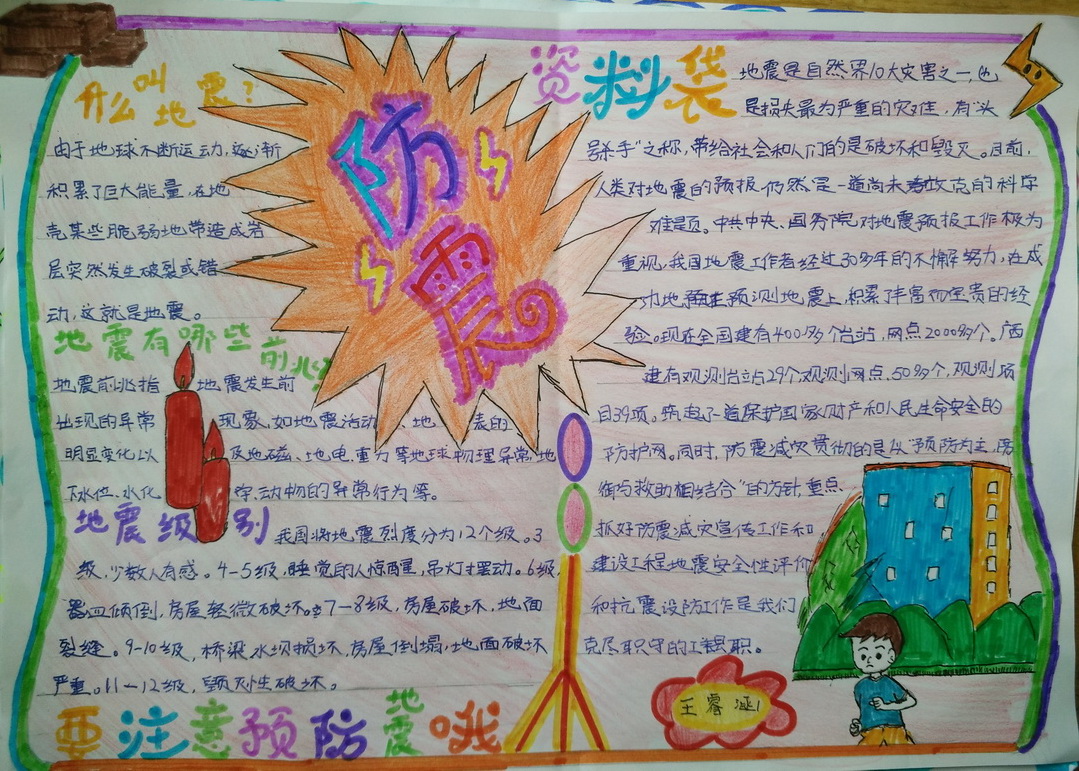 什么叫地震?
由于地球不断运动,逐渐
积累了巨大能量,在地
壳某些脆弱地带造成岩
层突然发生破裂或错
动,这就是地震。
地震有哪些前兆?
地震前兆指地震发生前
出现的异常现象,如地震活动、地表的
明显变化以及地磁、地电、重力等地球物理异常,地
下水位、水化学、动物的异常行为等。
地震级别
我国将地震烈度分为12个级。3
级,少数人有感。4-5级,睡觉的人惊醒,吊灯摆动。6级,
器皿倾倒,房屋轻微破坏。7-8级,房屋破坏,地面
裂缝。9-10级,桥梁水坝损坏,房屋倒塌,地面破坏
严重。11-12级,毁灭性破坏。
要注意预防地震哦
防震
资料袋
地震是自然界10大灾害之一,也
是损失最为严重的灾难,有"头
号杀手"之称,带给社会和人们的是破坏和毁灭。目前,
人类对地震的预报仍然是一道尚未攻克的科学
难题。中共中央、国务院对地震预报工作极为
重视,我国地震工作者经过30多年的不懈努力,在成
功地预测地震上积累了丰富而宝贵的经
验。现在全国建有400多个台站,网点2000多个。广西
建有观测台站29个,观测网点50多个,观测项
目39项。筑起了一道保护国家财产和人民生命安全的
防护网。同时,防震减灾贯彻的是以"预防为主,防
御与救助相结合"的方针,重点
抓好防震减灾宣传工作和
建设工程地震安全性评价
和抗震设防工作是我们
克尽职守的职。
王睿涵